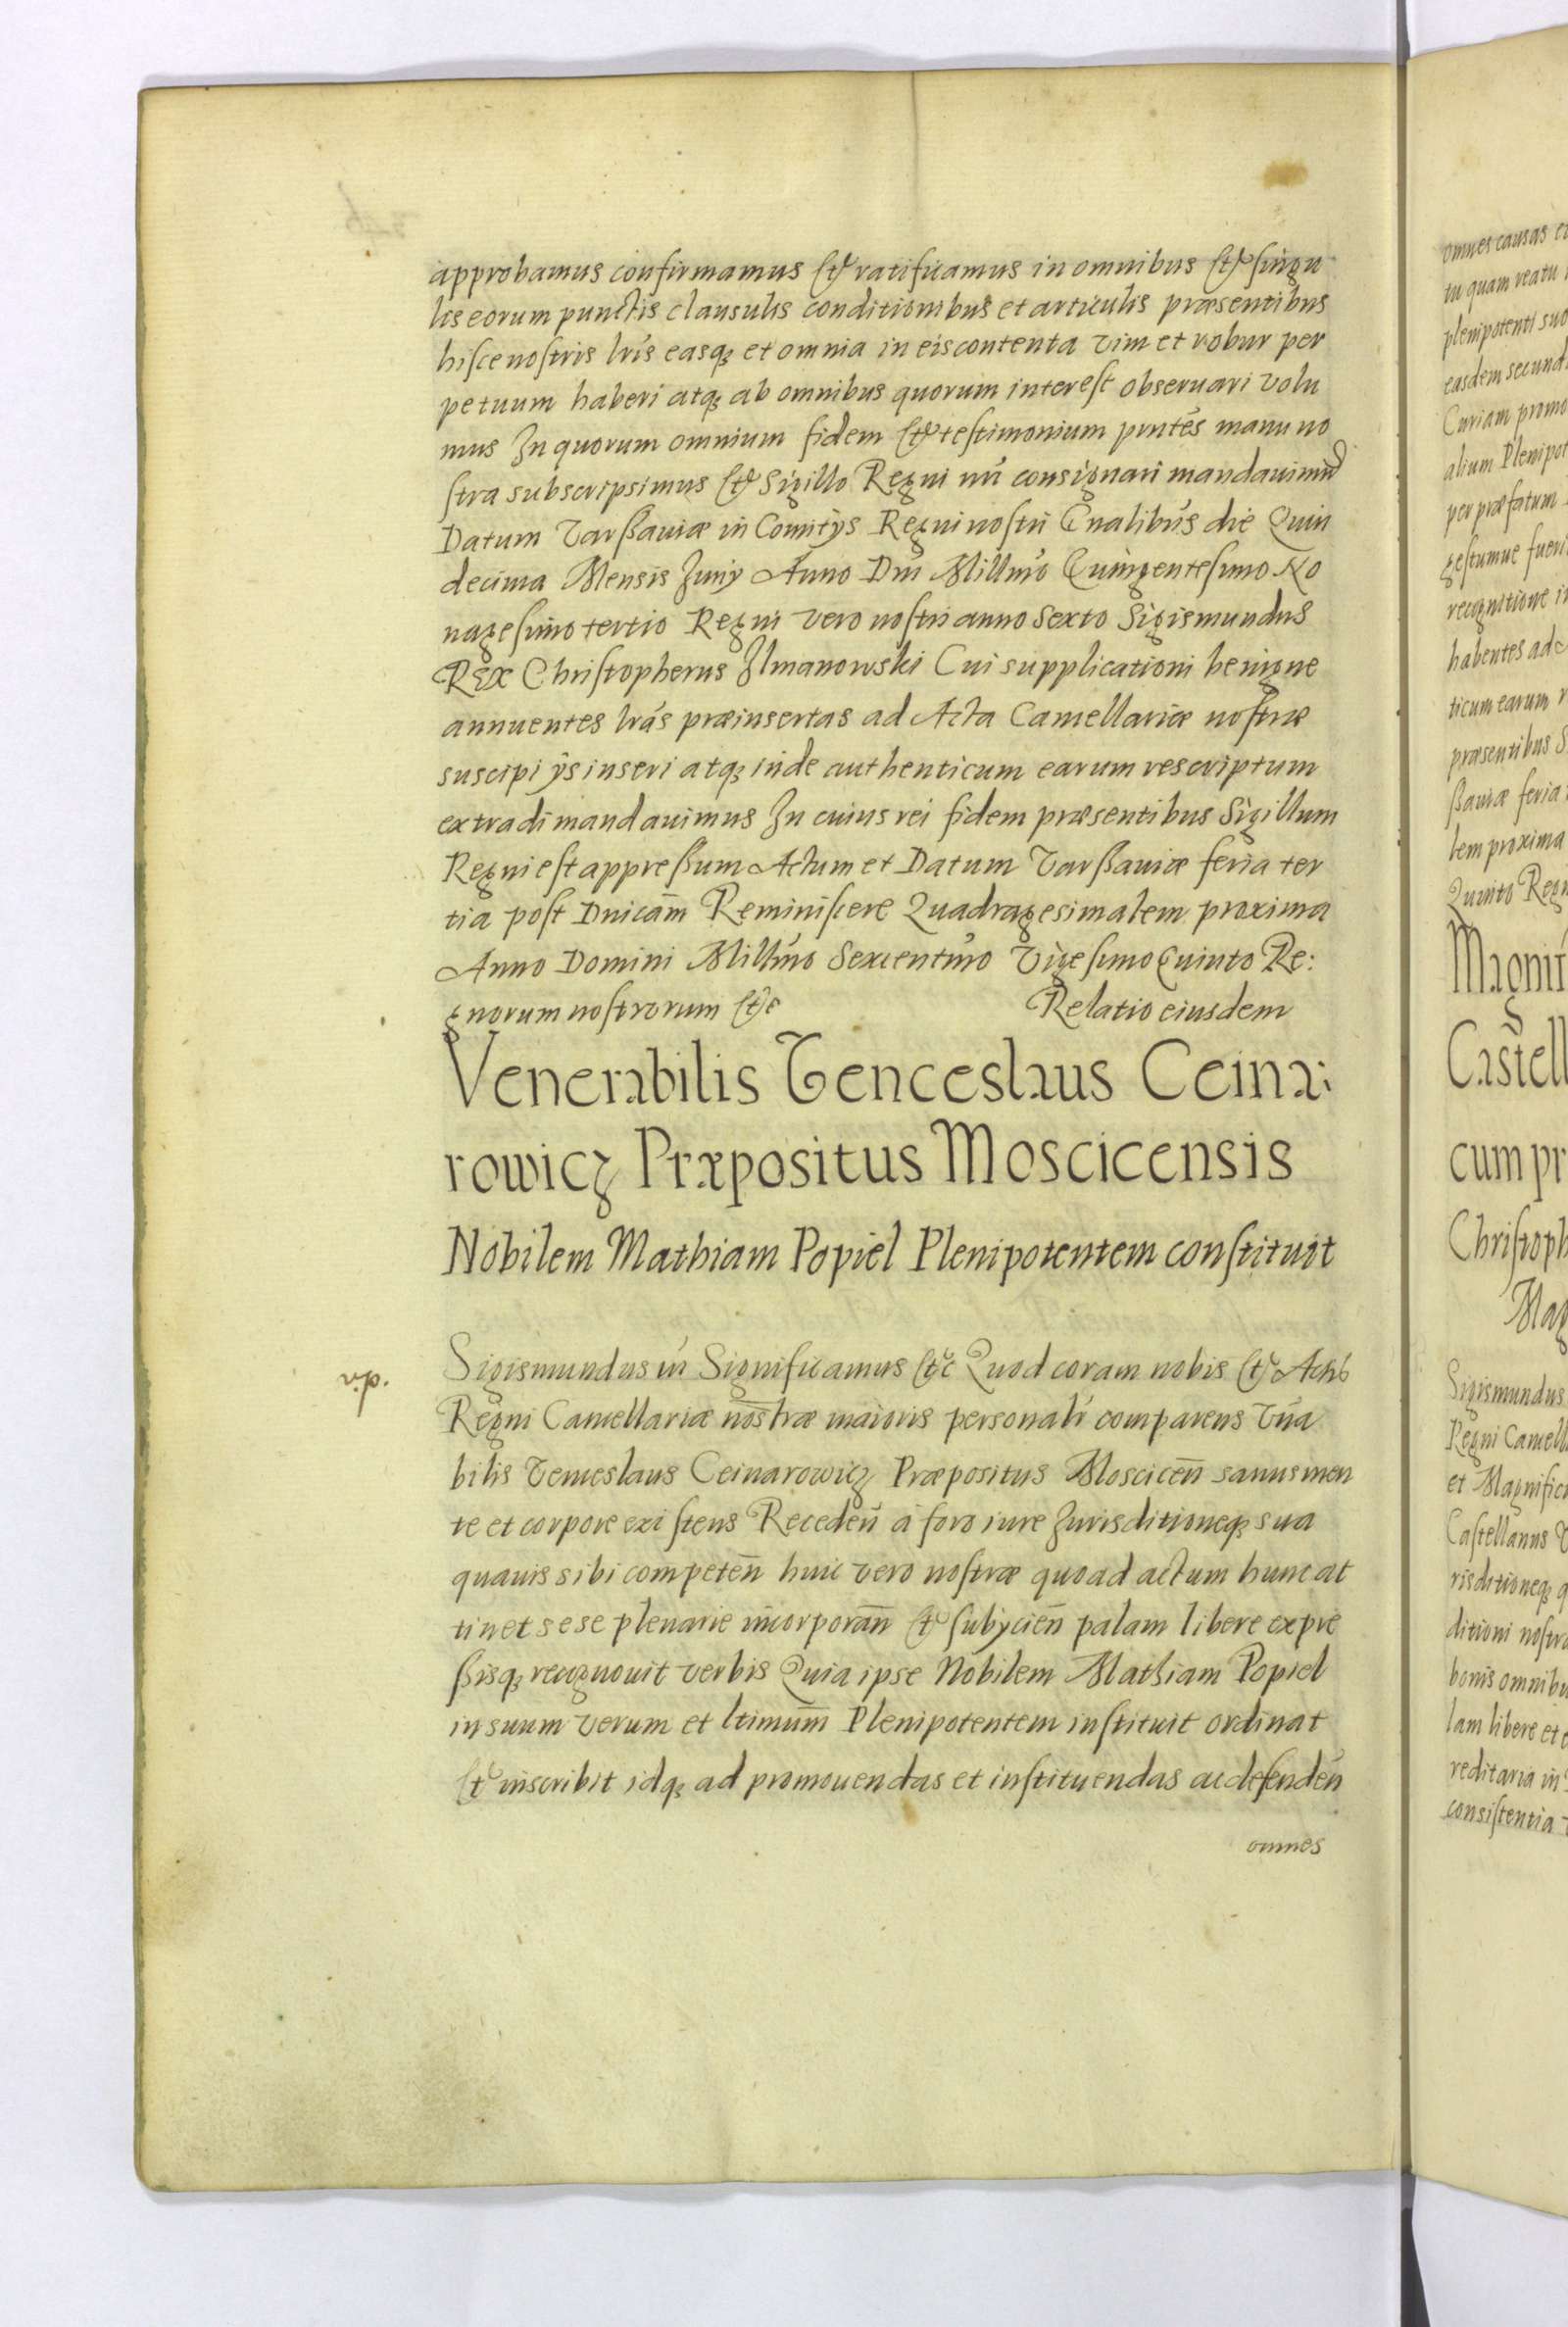 approbamus confirmamus et ratificamus in omnibus et singu
lis eorum punctis clausulis conditionibus et articulis præsentibus
hisce nostris lrís easq; et omnia in eis contenta vim et robur per
petuum haberi atq; ab omnibus quorum interest obseruari volu
mus In quorum omnium fidem et testimonium pñtes manu no
stra subscripsimus et Sigillo Regni nri consignari mandauimus
Datum Varsſauiæ in Comitijs Regni nostri Gnalibus die Quin
decima Mensis Junij Anno Dni Millmo Quingentesimo No
nagesimo tertio Regni vero nostri anno Sexto Sigismundus
REX Christopherus Ilmanowski Cui supplicationi benigne
annuentes lrás præinsertas ad Acta Cancellariæ nostræ
suscipi ijs inseri atq; inde authenticum earum rescriptum
extradi mandauimus In cuius rei fidem præsentibus Sigillum
Regni est appreſsum Actum et Datum Varſsauiæ feria ter
tia post Dnicam̄ Reminiscere Quadragesimalem proxima
Anno Domini Millmo Sexcentmo Vigesimo Quinto Re:
gnorum nostrorum etc Relatio eiusdem
Venerabilis Venceslaus Ceina:
rowicz Præpositus Moscicensis
Nobilem Mathiam Popiel Plenipotentem constituit
Sigismundus in Significamus etc Quod coram nobis et Actis
Regni Cancellariæ nostræ maioris personalr comparens Vná
bilis Venceslaus Ceinarowicz Præpositus Moscicen̄ sanus men
te et corpore existens Receden̄ à foro iure Jurisditioneq; sua
quauis sibi competen̄ huic vero nostræ quoad actum hunc at
tinet sese plenarie incorporan̄ et subijcien̄ palam libere expre
ſsisq; recognouit verbis Quia ipse Nobilem Mathiam Popiel
in suum verum et ltimum̄ Plenipotentem instituit ordinat
et inscribit idq; ad promouendas et instituendas ac defenden̄
omnes
omnes causas
tu quam reatu
plenipotenti suo
easdem secund
Curiam promo
alium Plenipot
per præfatum
gestumue fueri
recognitione
habentes ad
ticum earum
præsentibus S
ſsauiæ feria
lem proxima
Quinto Regn
Magnif
Castell
cum pr
Christoph
Mag
Sigismundus
Regni Cancell
et Magnific
Castellanus
risditioneq;
ditioni nostr
bonis omnibu
lam libere et
reditaria in
consistentia